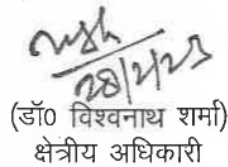 28/2/23
(डॉ0 विश्वनाथ शर्मा)
क्षेत्रीय अधिकारी